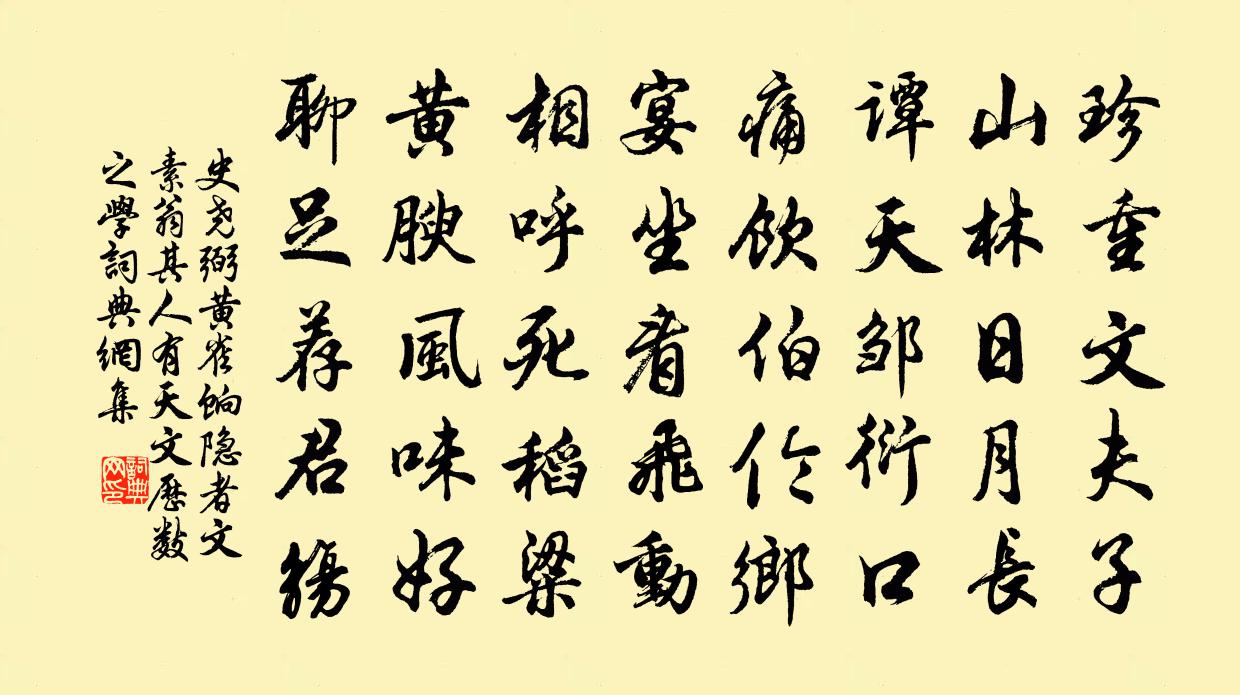 珍重文夫子
山林日月長
譚天邹衍口
痛飲伯伦鄉
宴坐看飛動
相呼死稻粱
黄腴風味好
聊足荐君觴
史尧弼黄雀饷隐者文
素翁其人有天文歷數
之學詞典網集
詞典
网印